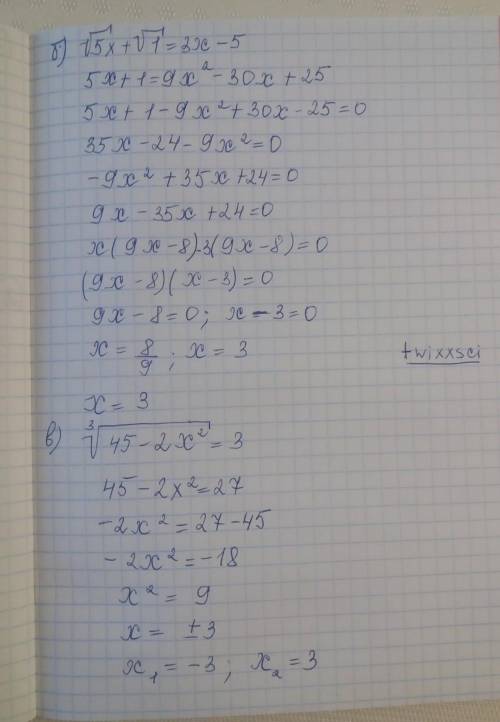 б) √5x + √1 = 3x - 5
5x + 1 = 9x² - 30x + 25
5x + 1 - 9x² + 30x - 25 = 0
35x - 24 - 9x² = 0
-9x² + 35x + 24 = 0
9x - 35x + 24 = 0
x(9x - 8) - 3(9x - 8) = 0
(9x - 8)(x - 3) = 0
9x - 8 = 0; x - 3 = 0
x = 8/9; x = 3
twixxsci
x = 3
в) ∛(45 - 2x²) = 3
45 - 2x² = 27
-2x² = 27 - 45
-2x² = -18
x² = 9
x = ±3
x₁ = -3; x₂ = 3